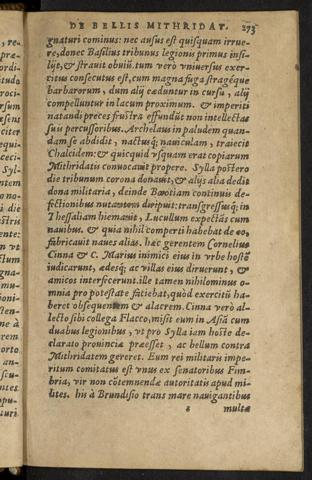 DE BELLIS MITHRIDAT. 273
gnaturi cominus: nec ausus est quisquam irrue-
re, donec Basilius tribunus legionis primus insi-
lijt, & strauit obuiũ. tum vero vniuersus exer-
citus consecutus est, cum magna fuga strageq́ue
barbarorum, dum alij cæduntur in cursu, alij
compelluntur in lacum proximum. & imperiti
natandi preces frustra effundũt non intellectæ
suis percussoribus. Archelaus in paludem quan-
dam se abdidit, nactusq́; nauiculam, traiecit
Chalcidem: & quicquid vsquam erat copiarum
Mithridatis conuocauit propere. Sylla postero
die tribunum corona donauit, & alijs alia dedit
dona militaria, deinde Bœotiam continuis de-
fectionibus nutantem diripuit: transgressusq́; in
Thessaliam hiemauit, Lucullum expectãs cum
nauibus. & quia nihil comperti habebat de eo,
fabricauit naues alias. hæc gerentem Cornelius
Cinna & C. Marius inimici eius in vrbe hostẽ
iudicarunt, ædesq́; ac villas eius diruerunt, &
amicos interfecerunt. ille tamen nihilominus o-
mnia pro potestate faciebat, quòd exercitũ ha-
beret obsequentem & alacrem. Cinna verò al-
lecto sibi collega Flacco, misit eum in Asiã cum
duabus legionibus, vt pro Sylla iam hoste de-
clarato prouinciæ præesset, ac bellum contra
Mithridatem gereret. Eum rei militaris impe-
ritum comitatus est vnus ex senatoribus Fim-
bria, vir non cõtemnendæ autoritatis apud mi-
lites. his à Brundisio trans mare nauigantibus
multæ